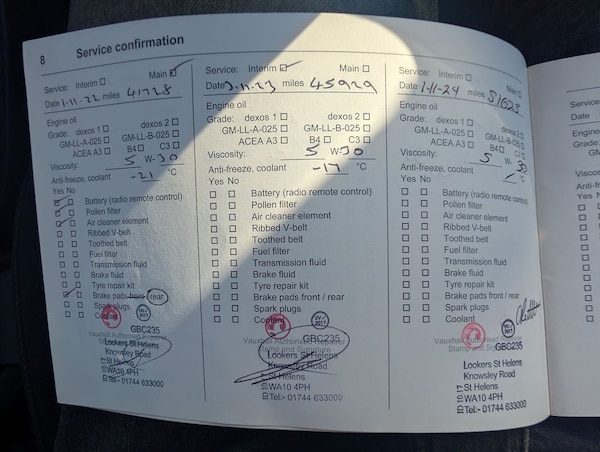 8
Service confirmation
Service: Interim Main
Date 1-11-22 miles 41728
Engine oil
Grade: dexos 1 dexos 2
GM-LL-A-025 GM-LL-B-025
ACEA A3 B4 C3
Viscosity: 5 W-30
Anti-freeze, coolant -21 °C
Yes No
Battery (radio remote control)
Pollen filter
Air cleaner element
Ribbed V-belt
Toothed belt
Fuel filter
Transmission fluid
Brake fluid
Tyre repair kit
Brake pads front / rear
Spark plugs
Coolant
GBC235
Vauxhall Authorised Repairer
Stamp and Signature
Lookers St Helens
Knowsley Road
St Helens
WA10 4PH
Tel:- 01744 633000
Service: Interim Main
Date 3-11-23 miles 45929
Engine oil
Grade: dexos 1 dexos 2
GM-LL-A-025 GM-LL-B-025
ACEA A3 B4 C3
Viscosity: 5 W-30
Anti-freeze, coolant -17 °C
Yes No
Battery (radio remote control)
Pollen filter
Air cleaner element
Ribbed V-belt
Toothed belt
Fuel filter
Transmission fluid
Brake fluid
Tyre repair kit
Brake pads front / rear
Spark plugs
Coolant
GBC235
Vauxhall Authorised Repairer
Stamp and Signature
Lookers St Helens
Knowsley Road
St Helens
WA10 4PH
Tel:- 01744 633000
Service: Interim Main
Date 1-11-24 miles 51628
Engine oil
Grade: dexos 1 dexos 2
GM-LL-A-025 GM-LL-B-025
ACEA A3 B4 C3
Viscosity: 5 W-30
Anti-freeze, coolant °C
Yes No
Battery (radio remote control)
Pollen filter
Air cleaner element
Ribbed V-belt
Toothed belt
Fuel filter
Transmission fluid
Brake fluid
Tyre repair kit
Brake pads front / rear
Spark plugs
Coolant
GBC235
Vauxhall Authorised
Stamp and
Lookers St Helens
Knowsley Road
St Helens
WA10 4PH
Tel:- 01744 633000
Service:
Date
Engine
Grade:
Anti-f
Yes